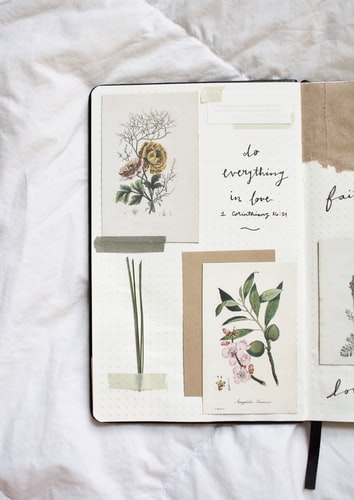 do
everything
in love.
1 Corinthians 16:14
fai
lo